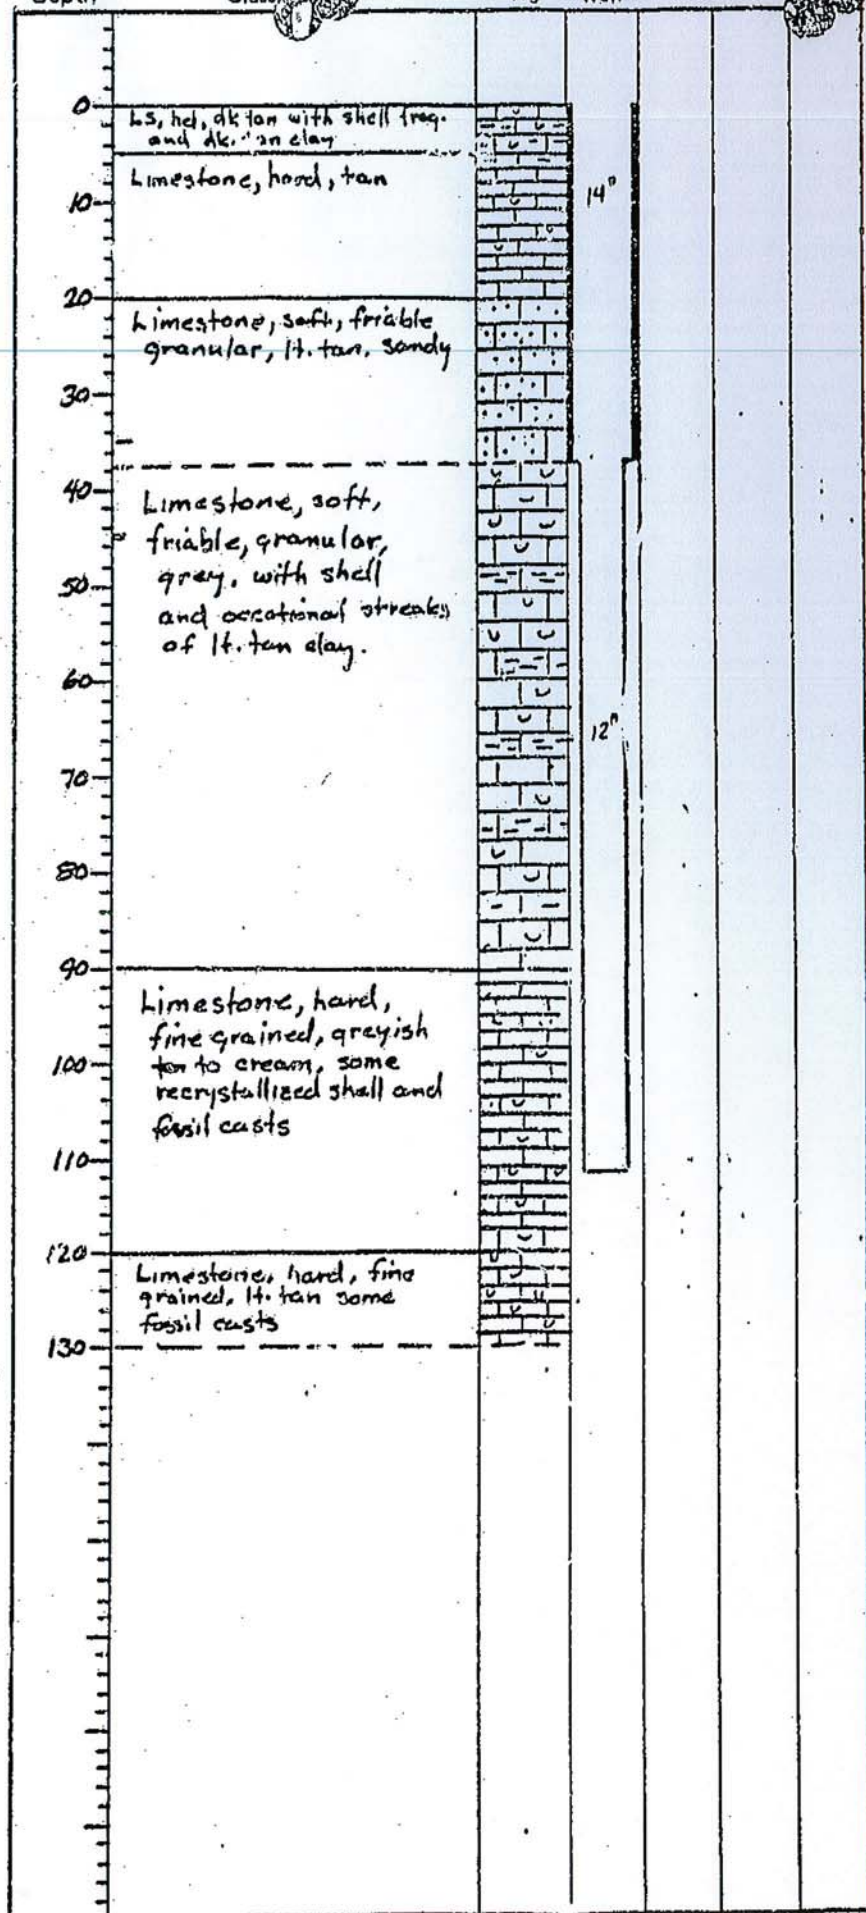 Depth
0
LS, hd, dk tan with shell frag.
and dk. clay
Limestone, hard, tan
10
14"
20
Limestone, soft, friable
granular, lt. tan, sandy
30
40
Limestone, soft,
friable, granular,
grey, with shell
and occational streaks
of lt. tan clay.
50
60
12"
70
80
90
Limestone, hard,
fine grained, greyish
tan to cream, some
recrystallized shell and
fossil casts
100
110
120
Limestone, hard, fine
grained, lt. tan some
fossil casts
130